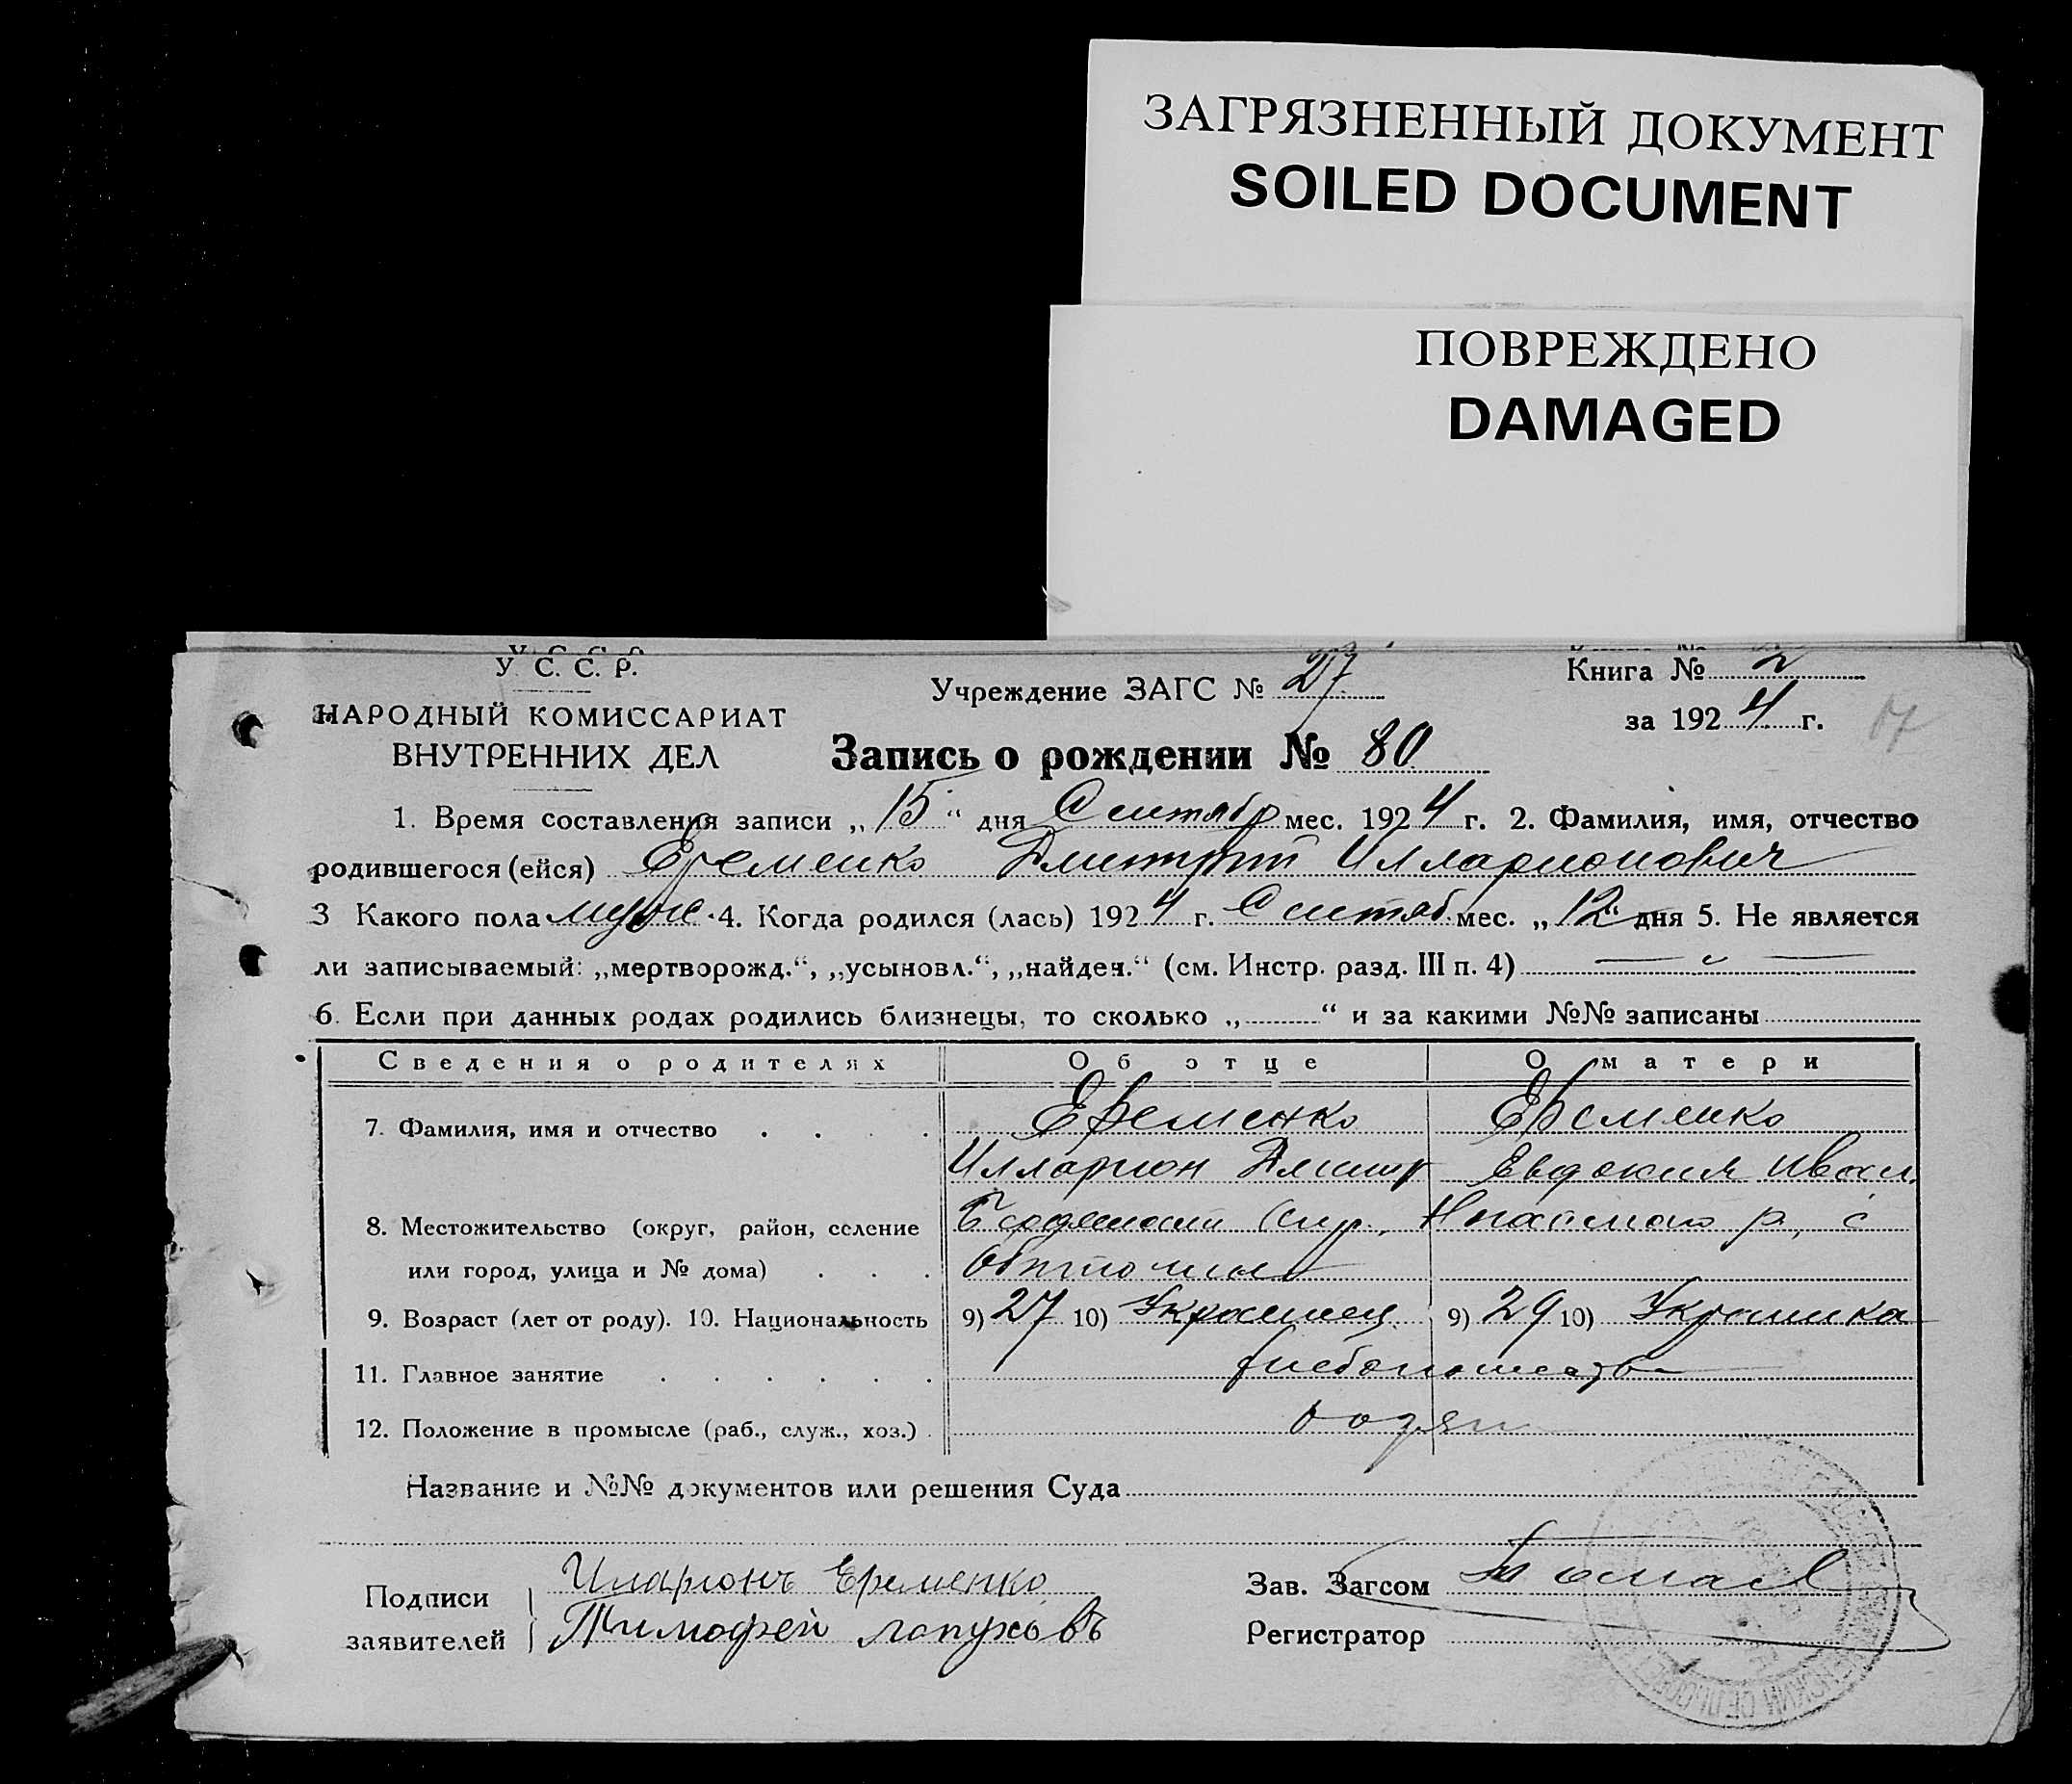 ЗАГРЯЗНЕННЫЙ ДОКУМЕНТ
SOILED DOCUMENT
ПОВРЕЖДЕНО
DAMAGED
У С. С. Р.
НАРОДНЫЙ КОМИССАРИАТ
ВНУТРЕННИХ ДЕЛ
Учреждение ЗАГС № 27
Книга № 2
за 1924 г.
Запись о рождении № 80
1. Время составления записи „15“ дня Сентябр мес. 1924 г. 2. Фамилия, имя, отчество
родившегося (ейся) Еременко Дмитрий Илларионович
3 Какого пола муж. 4. Когда родился (лась) 1924 г. Сентяб. мес. „12“ дня 5. Не является
ли записываемый: „мертворожд.“, „усыновл.“, „найден.“ (см. Инстр. разд. III п. 4)
6. Если при данных родах родились близнецы, то сколько „ “ и за какими №№ записаны
Сведения о родителях Об отце О матери
7. Фамилия, имя и отчество Еременко Еременко
Илларион Дмитр Евдокия Иван.
8. Местожительство (округ, район, селение р., с
или город, улица и № дома)
9. Возраст (лет от роду). 10. Национальность 9) 27 10) Украинец 9) 29 10) Украинка
11. Главное занятие
12. Положение в промысле (раб., служ., хоз.)
Название и №№ документов или решения Суда
Подписи заявителей
Иларионъ Еременко
Тимофей лопуховъ
Зав. Загсом
Регистратор